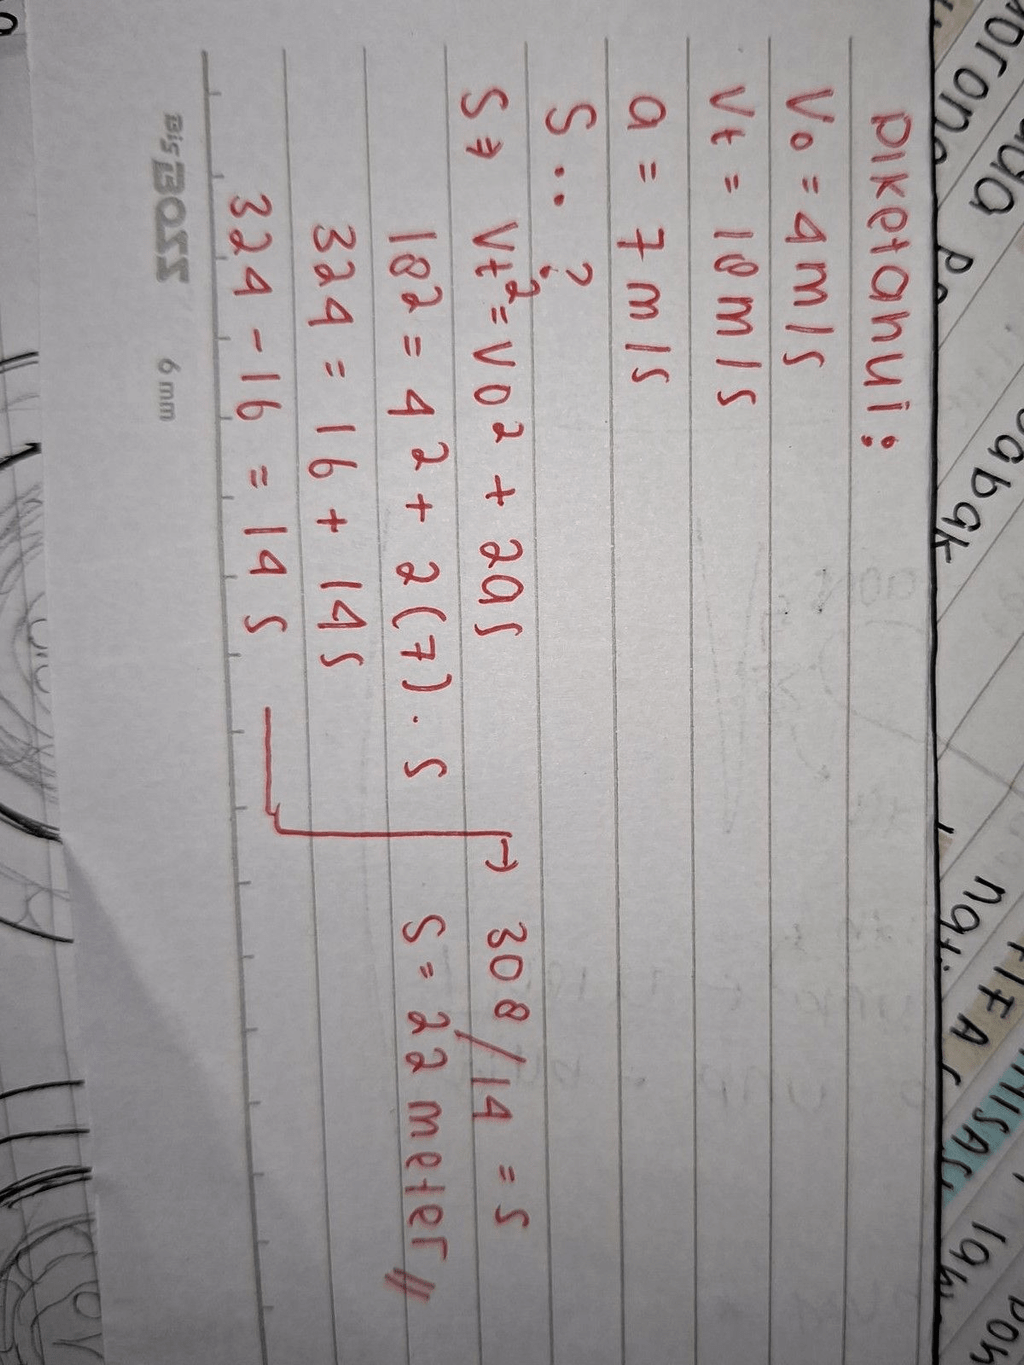 Diketahui:
Vo = 4 m/s
Vt = 18 m/s
a = 7 m/s
S..?
S → Vt² = Vo² + 2as
18² = 4² + 2(7).s
324 = 16 + 14 s
324 - 16 = 14 s
308/14 = s
S = 22 meter //
BOSS 6 mm
babak